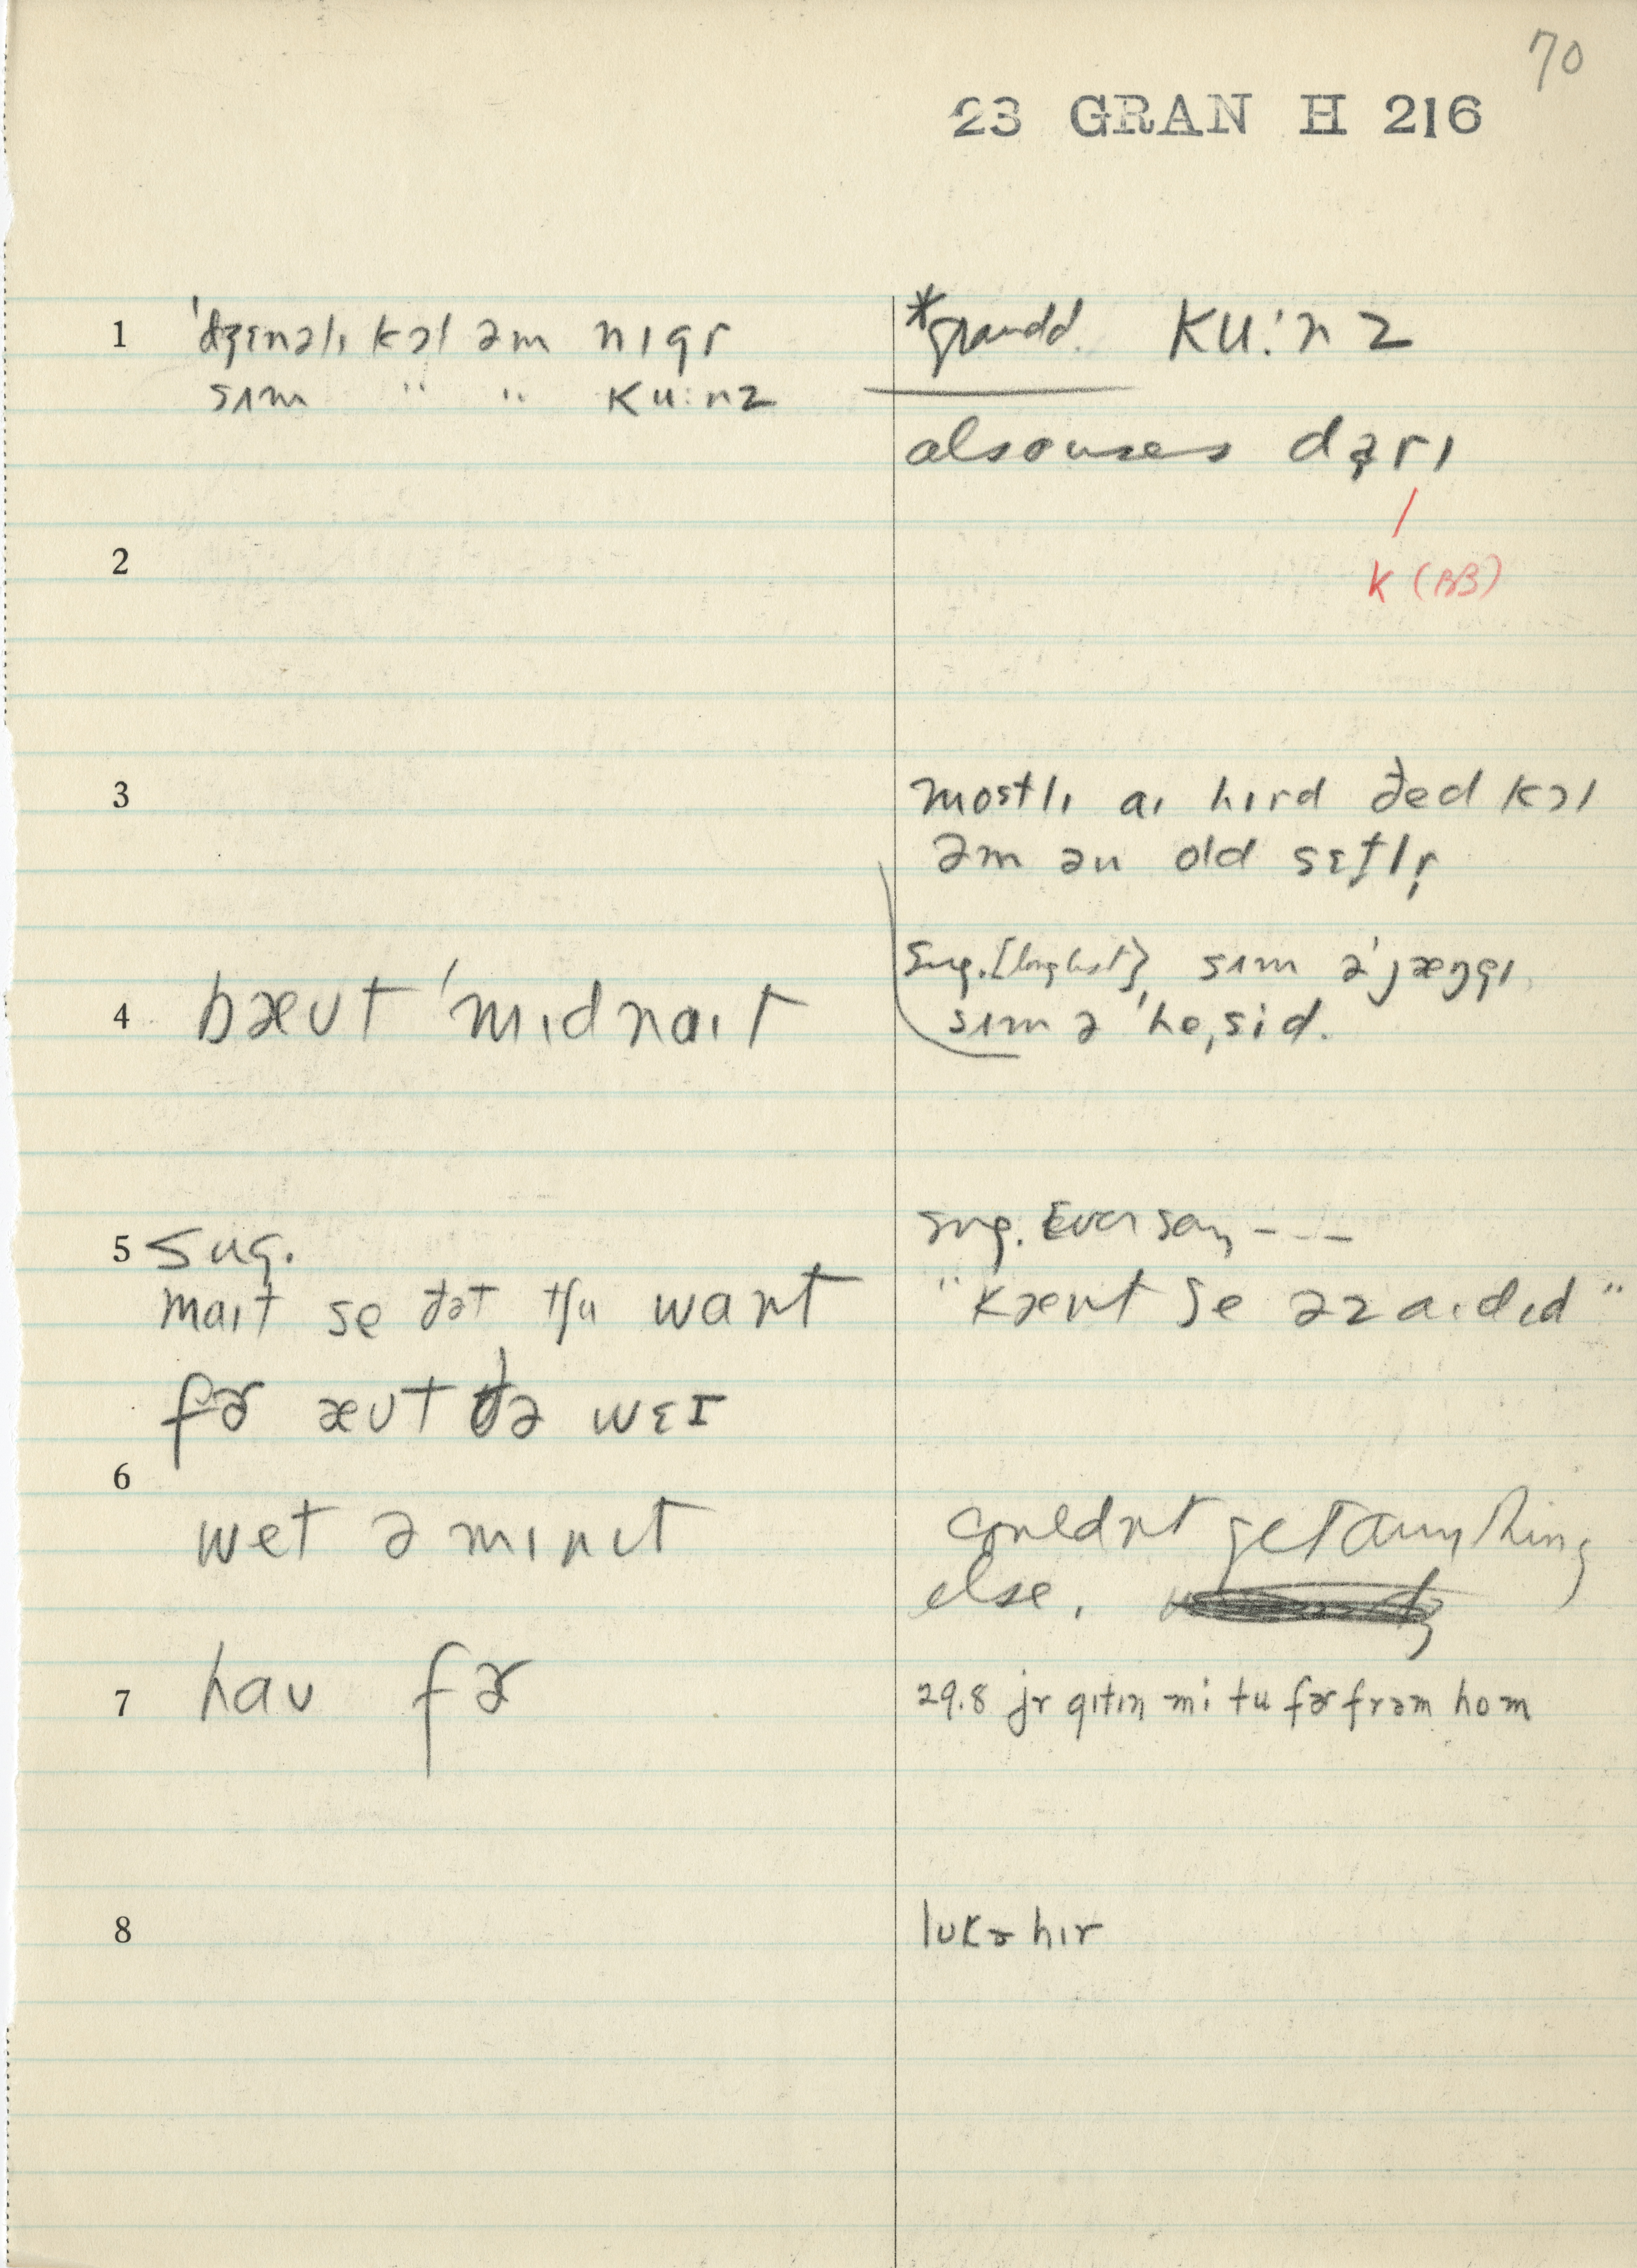 70
23 GRAN H 216
1 ˈdʒɛnəlɪ kɔl əm nɪgr̩
sʌm " " ku:nz
*grandd. ku:nz
also uses
K (BB)
2
3
mostlɪ aɪ hɪrd ðed kɔl
əm ən old sɛt̬lr̩
4 bæut ˈmɪdnaɪt
Sug. sʌm əˈjæŋgɪ
sʌm ə ˈheˌsid.
5 Sug.
maɪt se ðət tʃu want
sug. Ever say - - -
"kænt se əz aɪ dɪd"
fɚ æut ðə wɛɪ
6
wet ə mɪnɪt
couldnt get anything
else.
7 hau fɚ
29.8 jr gɪtɪŋ mi tu fɚ frəm hom
8
lukə hɪr